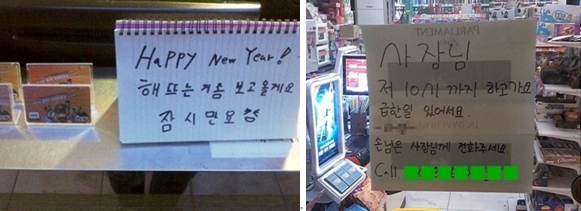 HaPPY New Year!
해뜨는거좀 보고올게요
잠시만요
PARLIAMENT
사장님
저 10시까지 하고가요
급한일 있어서요.
손님은 사장님께 전화주세요
Call